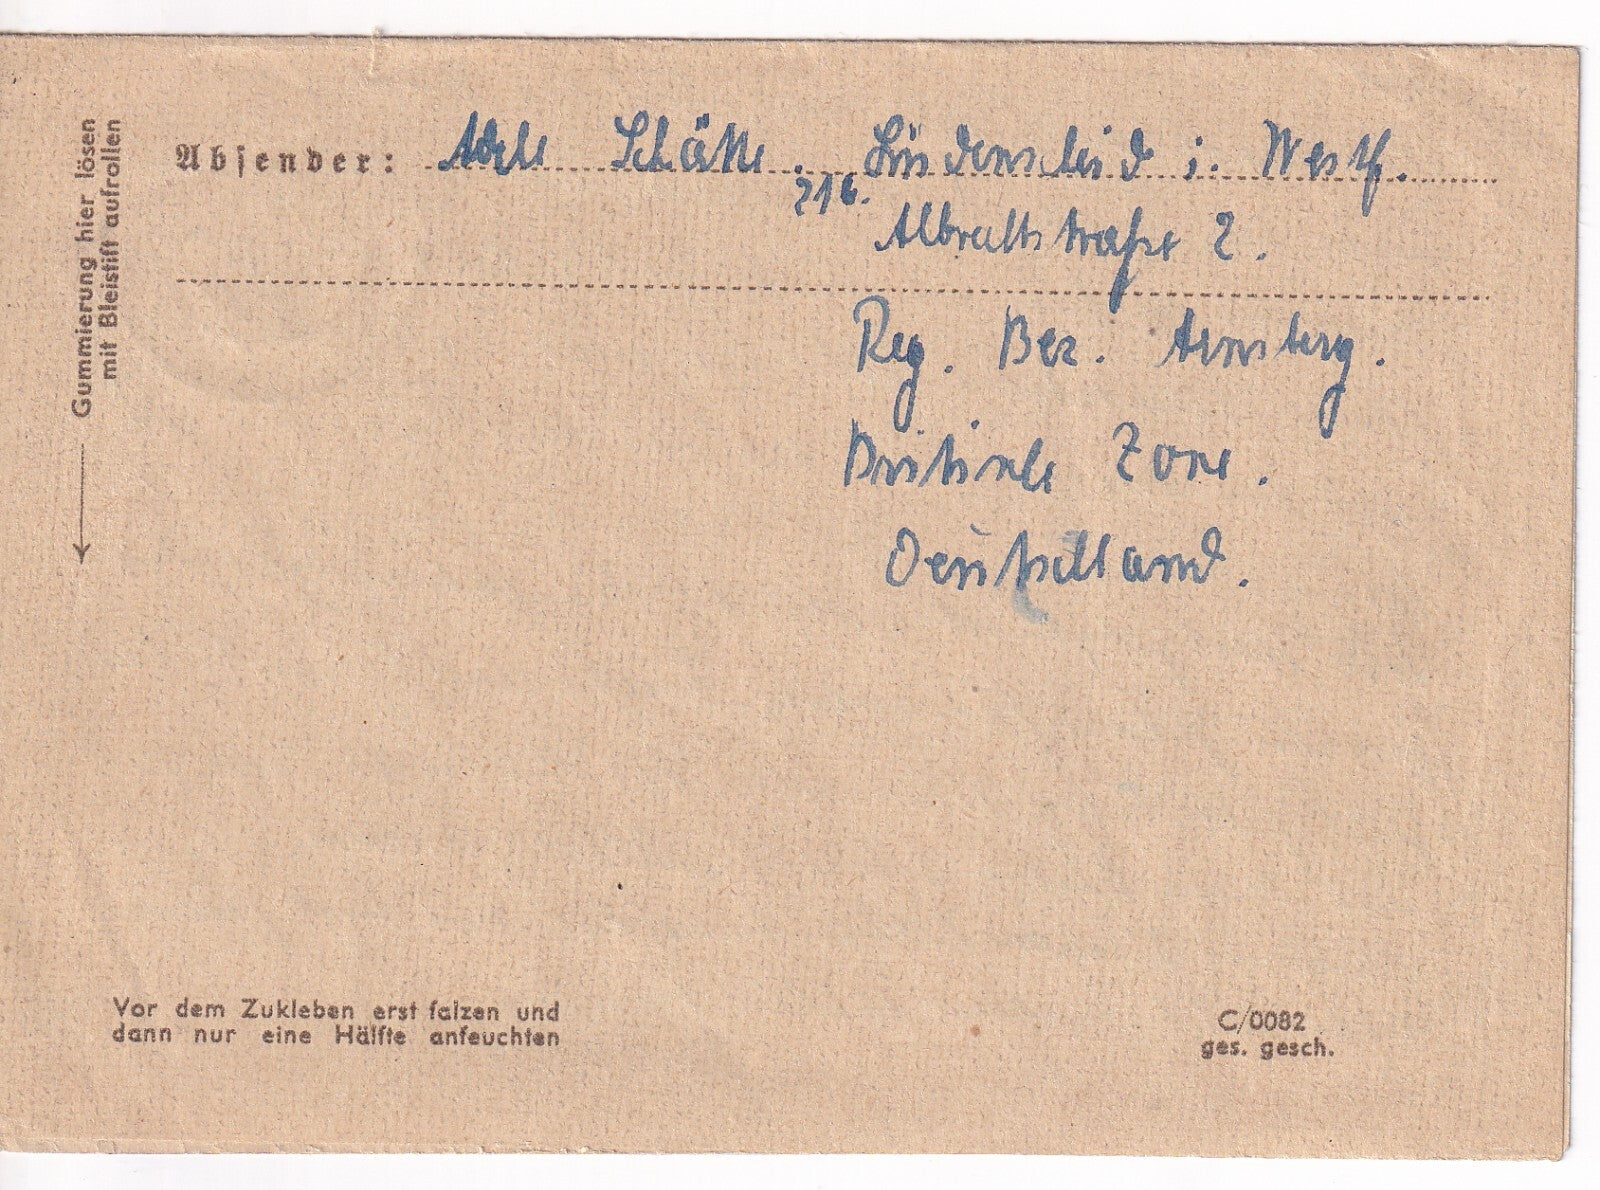 Gummierung hier lösen
mit Bleistift aufrollen
Absender: Adele Schätte. Lüdenscheid i. Westf.
21b.
Albrechtstraße 2.
Reg. Bez. Arnsberg.
Britische Zone.
Deutschland.
Vor dem Zukleben erst falzen und
dann nur eine Hälfte anfeuchten
C/0082
ges. gesch.